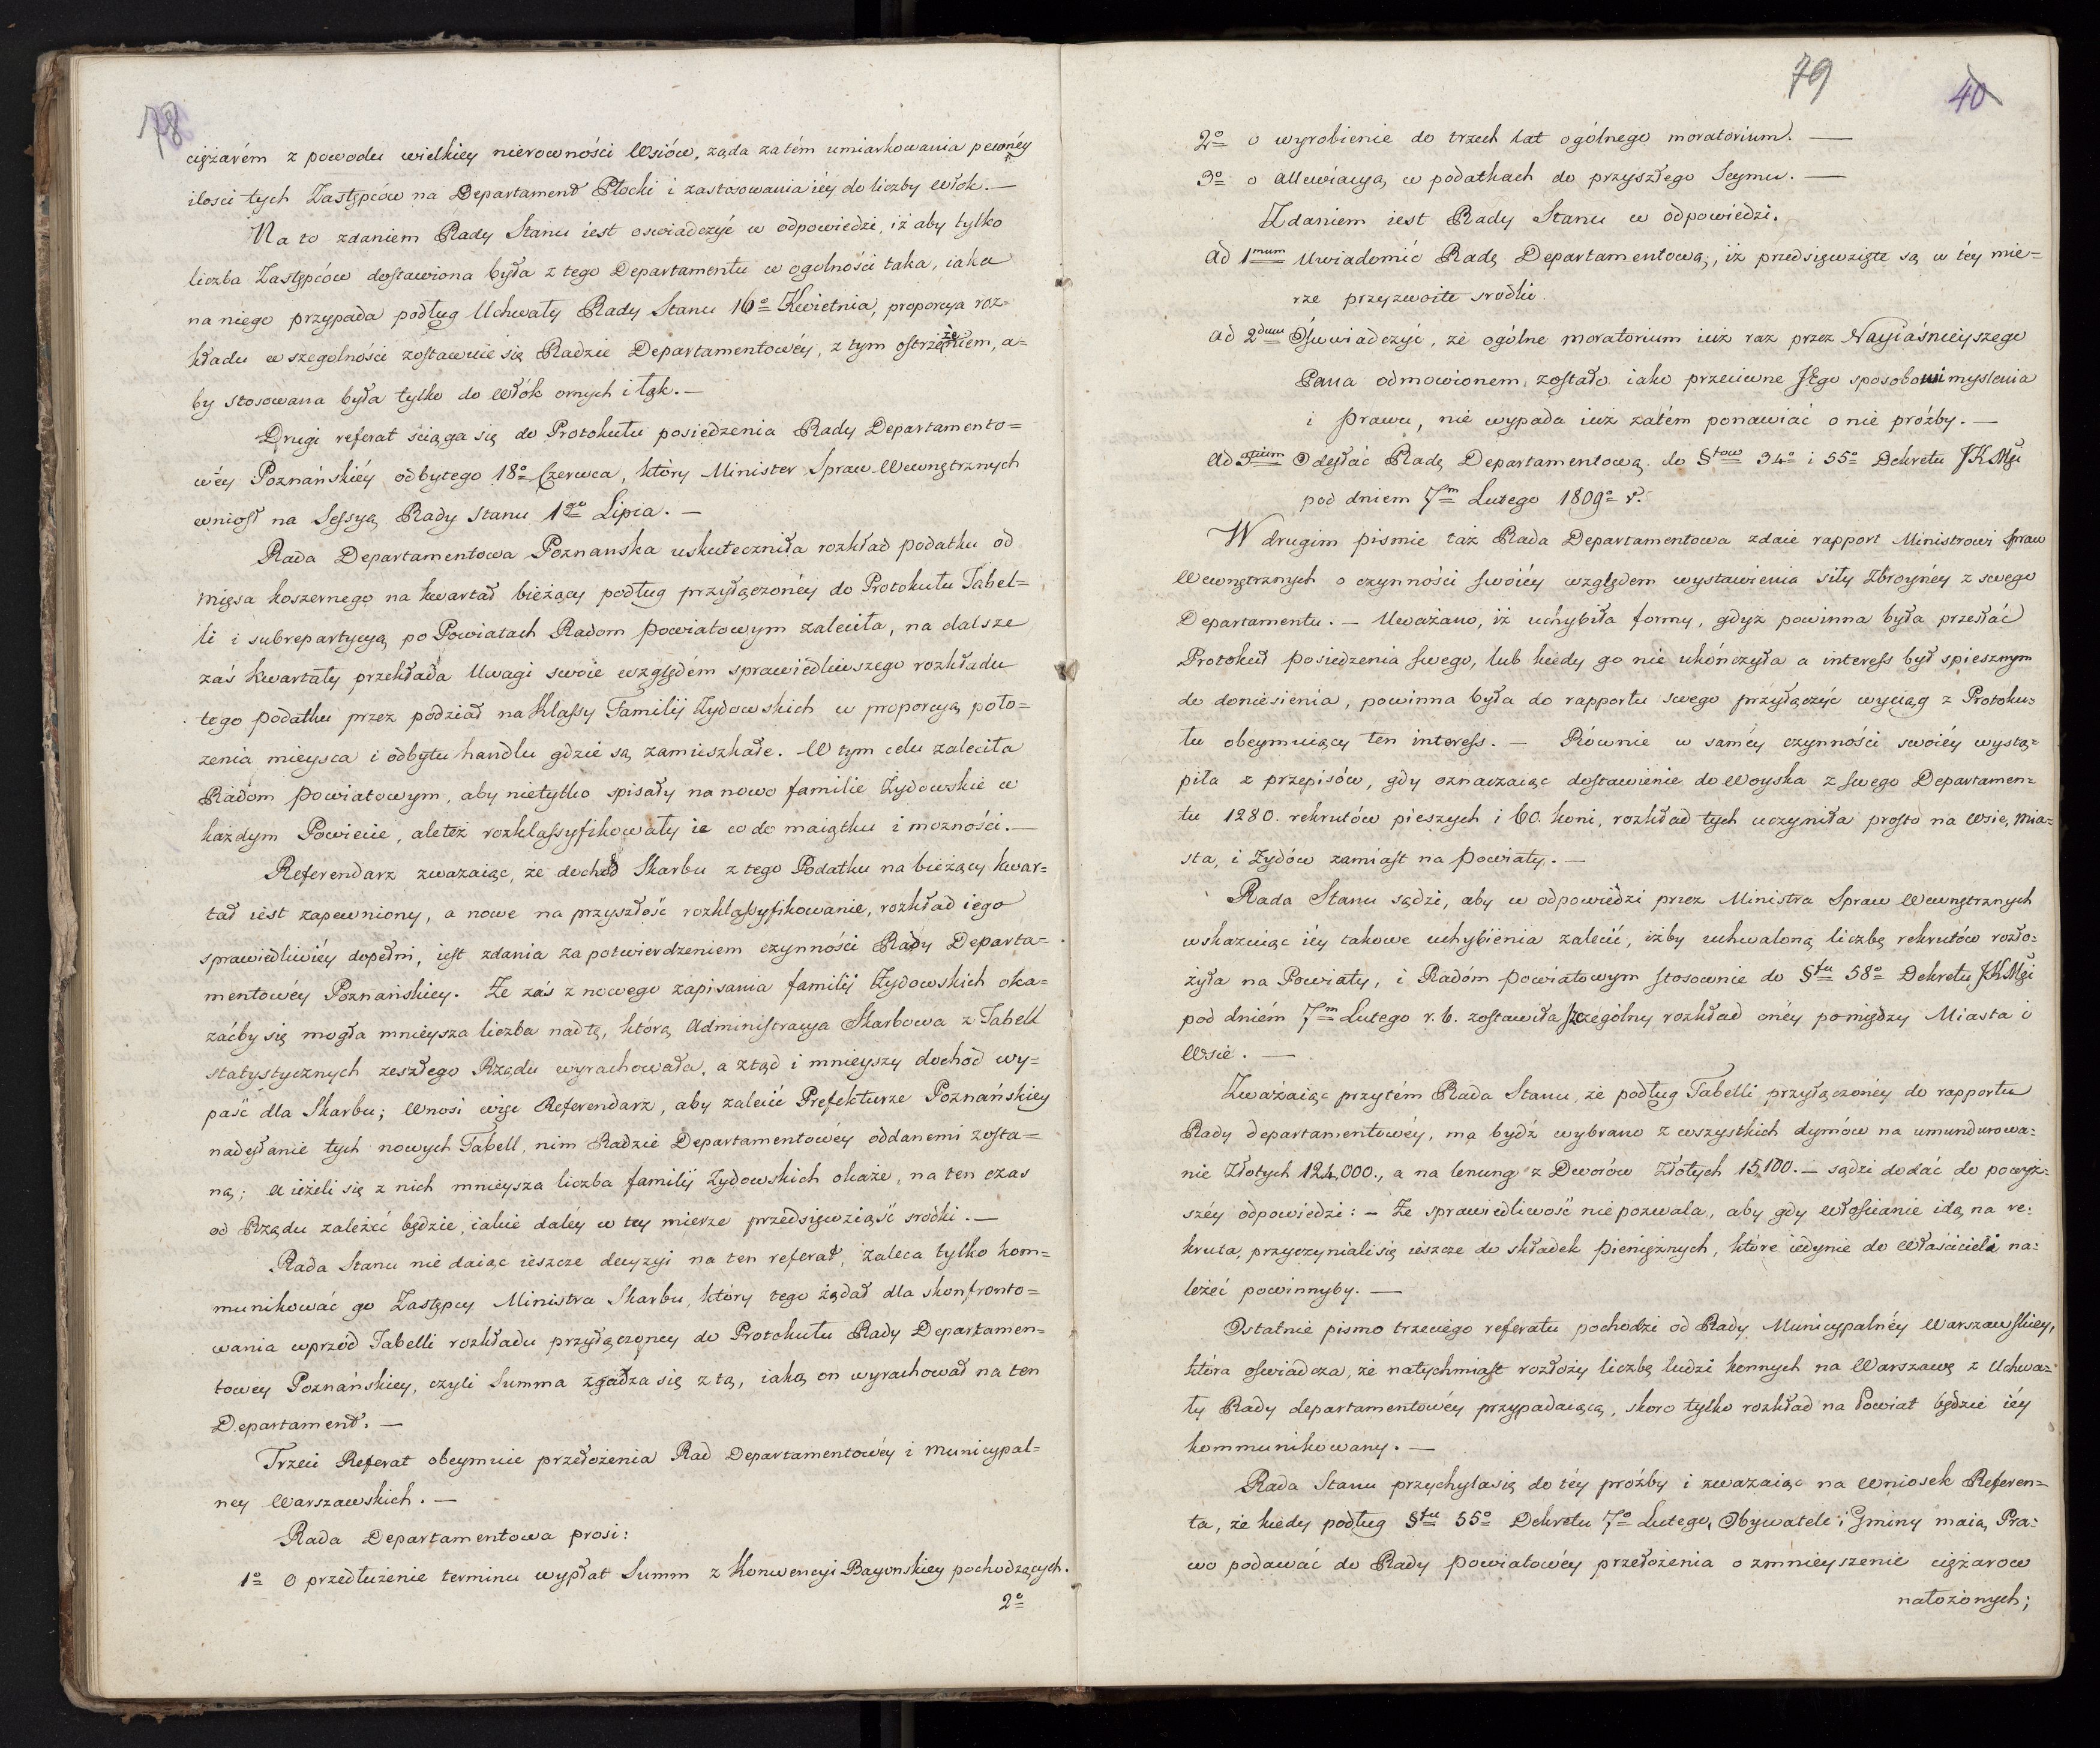 78
ciężarém z powodu wielkiey nierowności Wsiów, ząda zatém umiarkowania pewnéy
ilosci tych Zastępców na Departament Płocki i zastosowania iéy do liczby Włok. —
Na to zdaniem Rady Stanu iest oswiadczyć w odpowiedzi, iż aby tylko
liczba Zastępców dostawiona była z tego Departamentu w ogolności taka, iaka
na niego przypada podług Uchwały Rady Stanu 16º Kwietnia, proporcya roz=
kładu w szegolności zostawuie się Radzie Departamentowéy, z tym ostrzeżeniem, a=
by stosowana była tylko do Włók ornych i łąk. —
Drugi referat sciąga się do Protokułu posiedzenia Rady Departamento=
wéy Poznańskiéy odbytego 18º Czerwca, który Minister Spraw Wewnętrznych
wniosł na Sessyą Rady Stanu 1go Lipca. —
Rada Departamentowa Poznanska uskuteczniła rozkład podatku od
mięsa koszernego na kwartał bieżący podług przyłączonéy do Protokułu Tabel=
li i subrepartycyą po Powiatach Radom powiatowym zaleciła, na dalsze
zaś kwartały przekłada Uwagi swoie względém sprawiedliwszego rozkładu
tego podatku przez podział na Klassy Familij Zydowskich w proporcyą poło=
zenia mieysca i odbytu handlu gdzie są zamieszkałe. W tym celu zaleciła
Radom powiatowym, aby nietylko spisały na nowo familie Zydowskie w
każdym Powiecie, aleteż rozklassyfikowały ie co do maiątku i mozności. —
Referendarz zwazaiąc, że dochod Skarbu z tego Podatku na bieżący kwar=
tał iest zapewniony, a nowe na przyszłość rozklassyfikowanie, rozkład iego
sprawiedliwiéy dopełni, iest zdania za potwierdzeniem czynności Rady Departa=
mentowéy Poznańskiey. Że zaś z nowego zapisania familij Zydowskich oka=
zaćby się mogła mnieysza liczba nad tę, którą Administracya Skarbowa z Tabell
statystycznych zeszłego Rządu wyrachowała, a ztąd i mnieyszy dochod wy=
paść dla Skarbu; wnosi więc Referendarz, aby zalecić Prefekturze Poznańskiey
nadesłanie tych nowych Tabell, nim Radzie Departamentowéy oddanemi zosta=
ną; a ieżeli się z nich mnieysza liczba familij Zydowskich okaże, na ten czas
od Rządu zależeć będzie, iakie daléy w tey mierze przedsięwziąść srodki. —
Rada Stanu nie daiąc ieszcze decyzyi na ten referat, zaleca tylko kom=
munikować go Zastępcy Ministra Skarbu, który tego żądał dla skonfronto=
wania wprzód Tabelli rozkładu przyłączoney do Protokułu Rady Departamen=
towey Poznańskiey, czyli Summa zgadza się z tą, iaką on wyrachował na ten
Departament. —
Trzeci Referat obeymuie przełożenia Rad Departamentowéy i Municypal=
ney Warszawskich. —
Rada Departamentowa prosi:
1º O przedłużenie terminu wypłat Summ z Konwencyi Bayonskiey pochodzących.
2º
79
40
2º o wyrobienie do trzech lat ogólnego moratorium. —
3º o allewiacyą w podatkach do przyszłego Seymu. —
Zdaniem iest Rady Stanu w odpowiedzi.
ad 1mum Uwiadomić Radę Departamentową, iż przedsięwzięte są w téy mie=
rze przyzwoite srodki.
ad 2dum Oswiadczyć, że ogólne moratorium iuż raz przez Nayiaśnieyszego
Pana odmowionem zostało iako przeciwne JEgo sposobowi myslenia
i prawu, nie wypada iuż zatém ponawiać o nie próżby. —
ad 3tium Odesłać Radę Departamentową do §tow 34º i 55º Dekretu JKMci
pod dniem 7m Lutego 1809º r.
W drugim pismie taż Rada Departamentowa zdaie rapport Ministrowi Spraw
Wewnętrznych o czynności swoiéy względem wystawienia siły zbroynéy z swego
Departamentu. — Uważano, iż uchybiła formy, gdyż powinna była przesłać
Protokuł posiedzenia swego, lub kiedy go nie ukończyła a interess był spiesznym
do doniesienia, powinna była do rapportu swego przyłączyć wyciąg z Protoku=
łu obeymuiący ten interess. — Równie w saméy czynności swoiéy wystą=
piła z przepisów, gdy oznaczaiąc dostawienie do Woyska z swego Departamen=
tu 1280. rekrutów pieszych i 60. koni, rozkład tych uczyniła prosto na wsie, mia=
sta, i Zydów zamiast na powiaty. —
Rada Stanu sądzi, aby w odpowiedzi przez Ministra Spraw Wewnętrznych
wskazuiąc iéy takowe uchybienia zalecić, iżby uchwaloną liczbę rekrutów rozło=
żyła na Powiaty, i Radóm powiatowym stosownie do §fu 58º Dekretu JKMci
pod dniém 7m Lutego r. b. zostawiła szczególny rozkład onéy pomiędzy Miasta i
Wsie. —
Zważaiąc przytém Rada Stanu, że podług Tabelli przyłączonéy do rapportu
Rady departamentowéy, ma bydź wybrano z wszystkich dymów na umundurowa=
nie Złotych 124,000., a na lenung z Dworów Złotych 15,100. — sądzi dodać do powyż=
széy odpowiedzi: — Że sprawiedliwość nie pozwala, aby gdy włościanie idą na re=
kruta, przyczyniali się ieszcze do składek pieniężnych, które iedynie do Właścicieli na=
leżeć powinnyby. —
Ostatnie pismo trzeciego referatu pochodzi od Rady Municypalnéy Warszawskiey,
która oswiadcza, że natychmiast rozłoży liczbę ludzi konnych na Warszawę z Uchwa=
ły Rady departamentowéy przypadaiącą, skoro tylko rozkład na Powiat będzie iéy
kommunikowany. —
Rada Stanu przychyla się do téy próżby i zwazaiąc na Wniosek Referen=
ta, że kiedy podług §fu 55º Dekretu 7º Lutego, Obywatele i Gminy maią Pra=
wo podawać do Rady powiatowéy przełożenia o zmnieyszenie ciężarow
nałożonych;